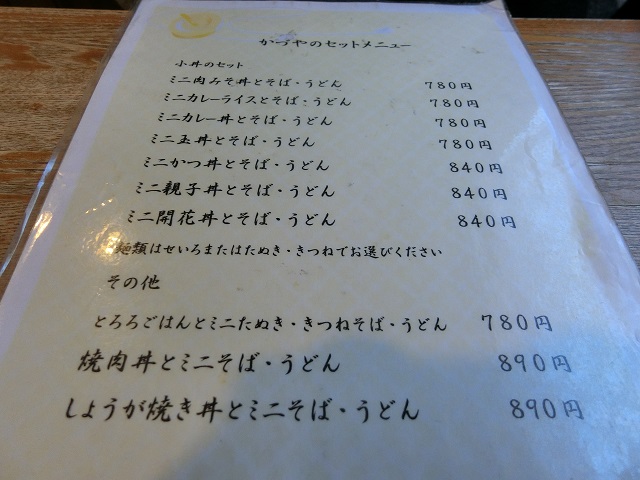 かつやのセットメニュー
小丼のセット
ミニ肉みそ丼とそば・うどん 780円
ミニカレーライスとそば・うどん 780円
ミニカレー丼とそば・うどん 780円
ミニ玉丼とそば・うどん 780円
ミニかつ丼とそば・うどん 840円
ミニ親子丼とそば・うどん 840円
ミニ開花丼とそば・うどん 840円
麺類はせいろまたはたぬき・きつねでお選びください
その他
とろろごはんとミニたぬき・きつねそば・うどん 780円
焼肉丼とミニそば・うどん 890円
しょうが焼き丼とミニそば・うどん 890円